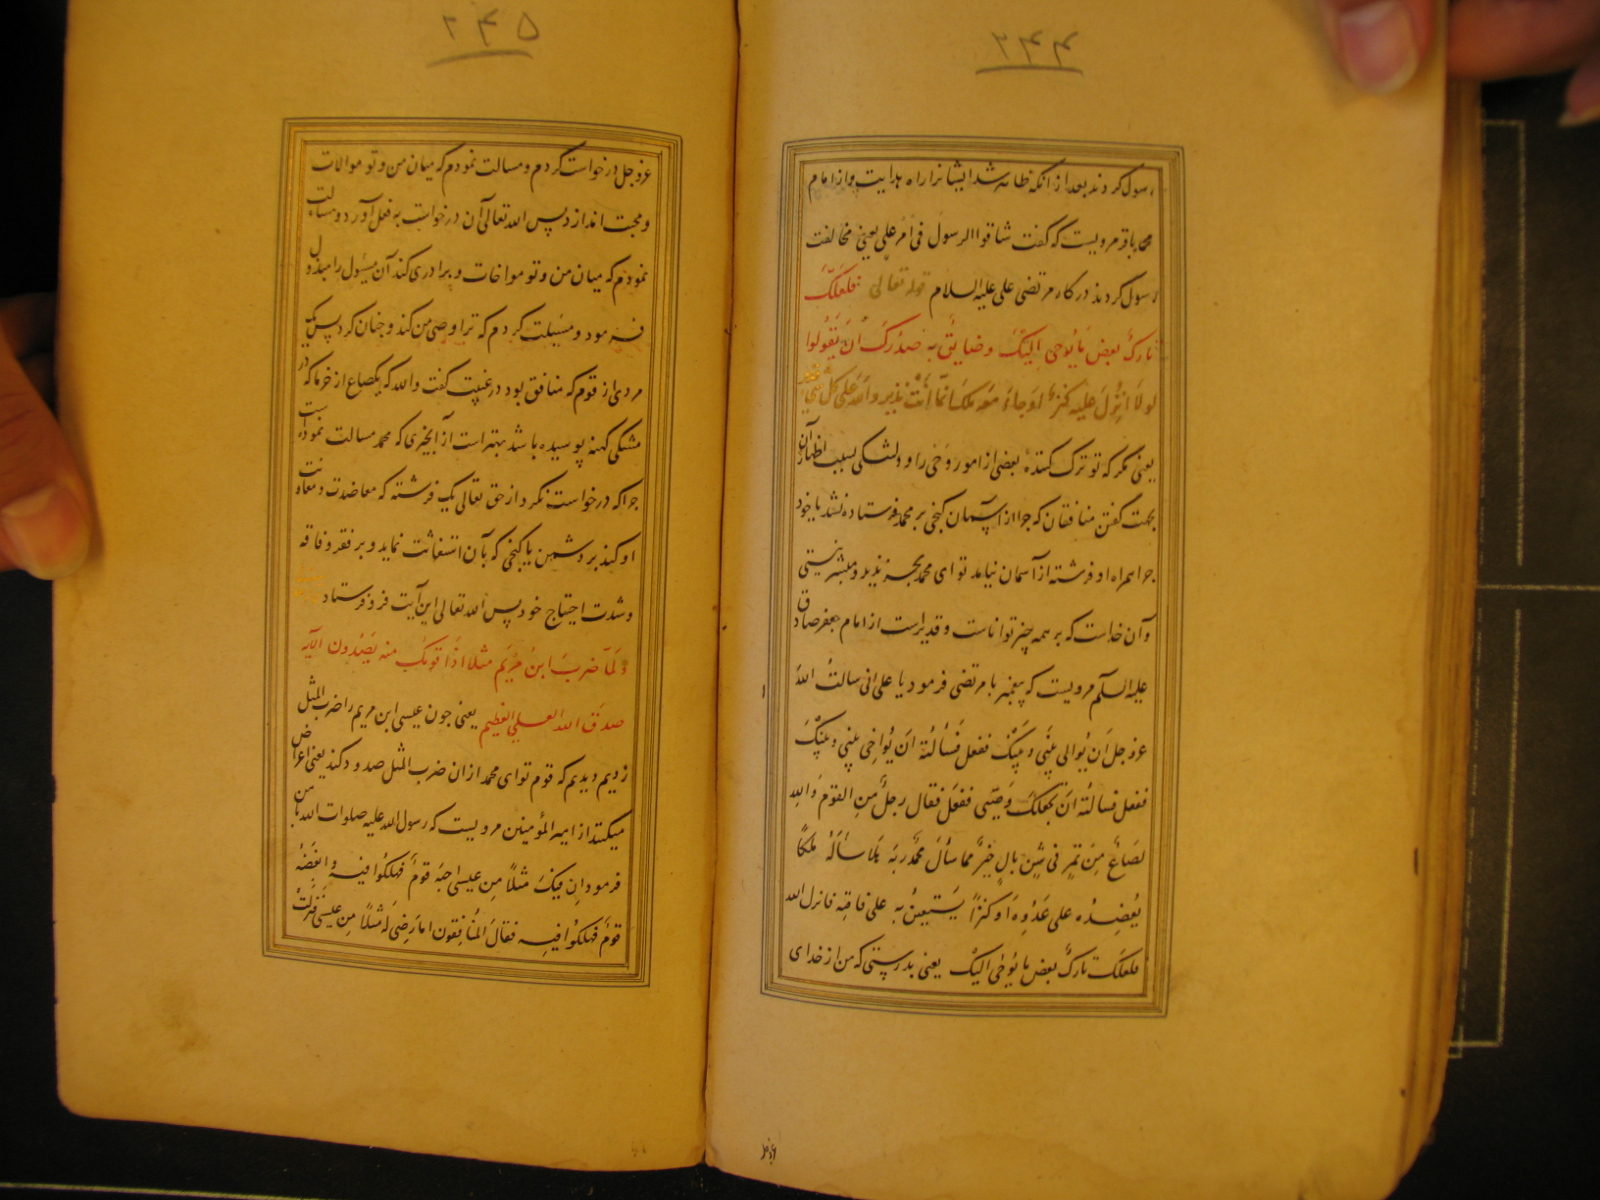 ۲۴۴
رسول کردند بعد از انکه ظاهر شد ایشانرا راه هدایت و از امام
محمد باقر مرویست که گفت شاقوا الرسول فی امر علی یعنی مخالفت
رسول کردند در کار مرتضی علی علیه السلام قوله تعالی فلعلک
تارک بعض ما یوحی الیک وضایق به صدرک ان یقولوا
لولا انزل علیه کنز او جاء معه ملک انما انت نذیر والله علی کل شیء
یعنی مگر که تو ترک کننده بعضی از امور وحی را و دلتنگی بسبب اظهار آن
بجهت گفتن منافقان که چرا از آسمان گنجی بر محمد فرستاده نشد یا خود
چرا همراه او فرشته از آسمان نیامد تو ای محمد بجز نذیر و مبشر نیستی
وآن خداست که بر همه چیز تواناست و قدیر است از امام جعفر صادق
علیه السلام مرویست که پیغمبر با مرتضی فرمود یا علی انی سالت الله
عز وجل ان یوالی بینی وبینک ففعل فسألته ان یواخی بینی وبینک
ففعل فسالته ان یجعلک وصیی ففعل فقال رجل من القوم والله
لصاع من تمر فی شن بال خیر مما سأل محمد ربه هلا سأله ملکا
یعضده علی عدوه او کنزا یستعین به علی فاقته فانزل الله
فلعلک تارک بعض ما یوحی الیک یعنی بدرستی که من از خدای
عز وجل
۲۴۵
عز وجل درخواست کردم و مسالت نمودم که میان من و تو موالات
و محبت اندازد پس الله تعالی آن درخواست به فعل آورد و مسالت
نمودم که میان من و تو مواخات و برادری کند آن مسؤل را مبذول
فرمود و مسئلت کردم که ترا وصی من کند و چنان کرد پس یک
مردی از قوم که منافق بود در غیبت گفت والله که یکصاع از خرما که در
مشکی کهنه پوسیده باشد بهتر است از آنچیزی که محمد مسالت نموده است
چرا که درخواست نکرد از حق تعالی یک فرشته که معاضدت و معاونت
او کند بر دشمن یا گنجی که بآن استغاثت نماید و بر فقر و فاقه
و شدت احتیاج خود پس الله تعالی این آیت فرو فرستاد
ولما ضرب ابن مریم مثلا اذا قومک منه یصدون الآیه
صدق الله العلی العظیم یعنی چون عیسی ابن مریم را ضرب المثل
زدیم دیدیم که قوم تو ای محمد ازان ضرب المثل صدود کند یعنی اعراض
میکنند از امیر المؤمنین مرویست که رسول الله علیه صلوات الله با من
فرمود ان فیک مثلا من عیسی احبه قوم فهلکوا فیه وابغضه
قوم فهلکوا فیه فقال المنافقون اما رضی له مثلا من عیسی فنزلت